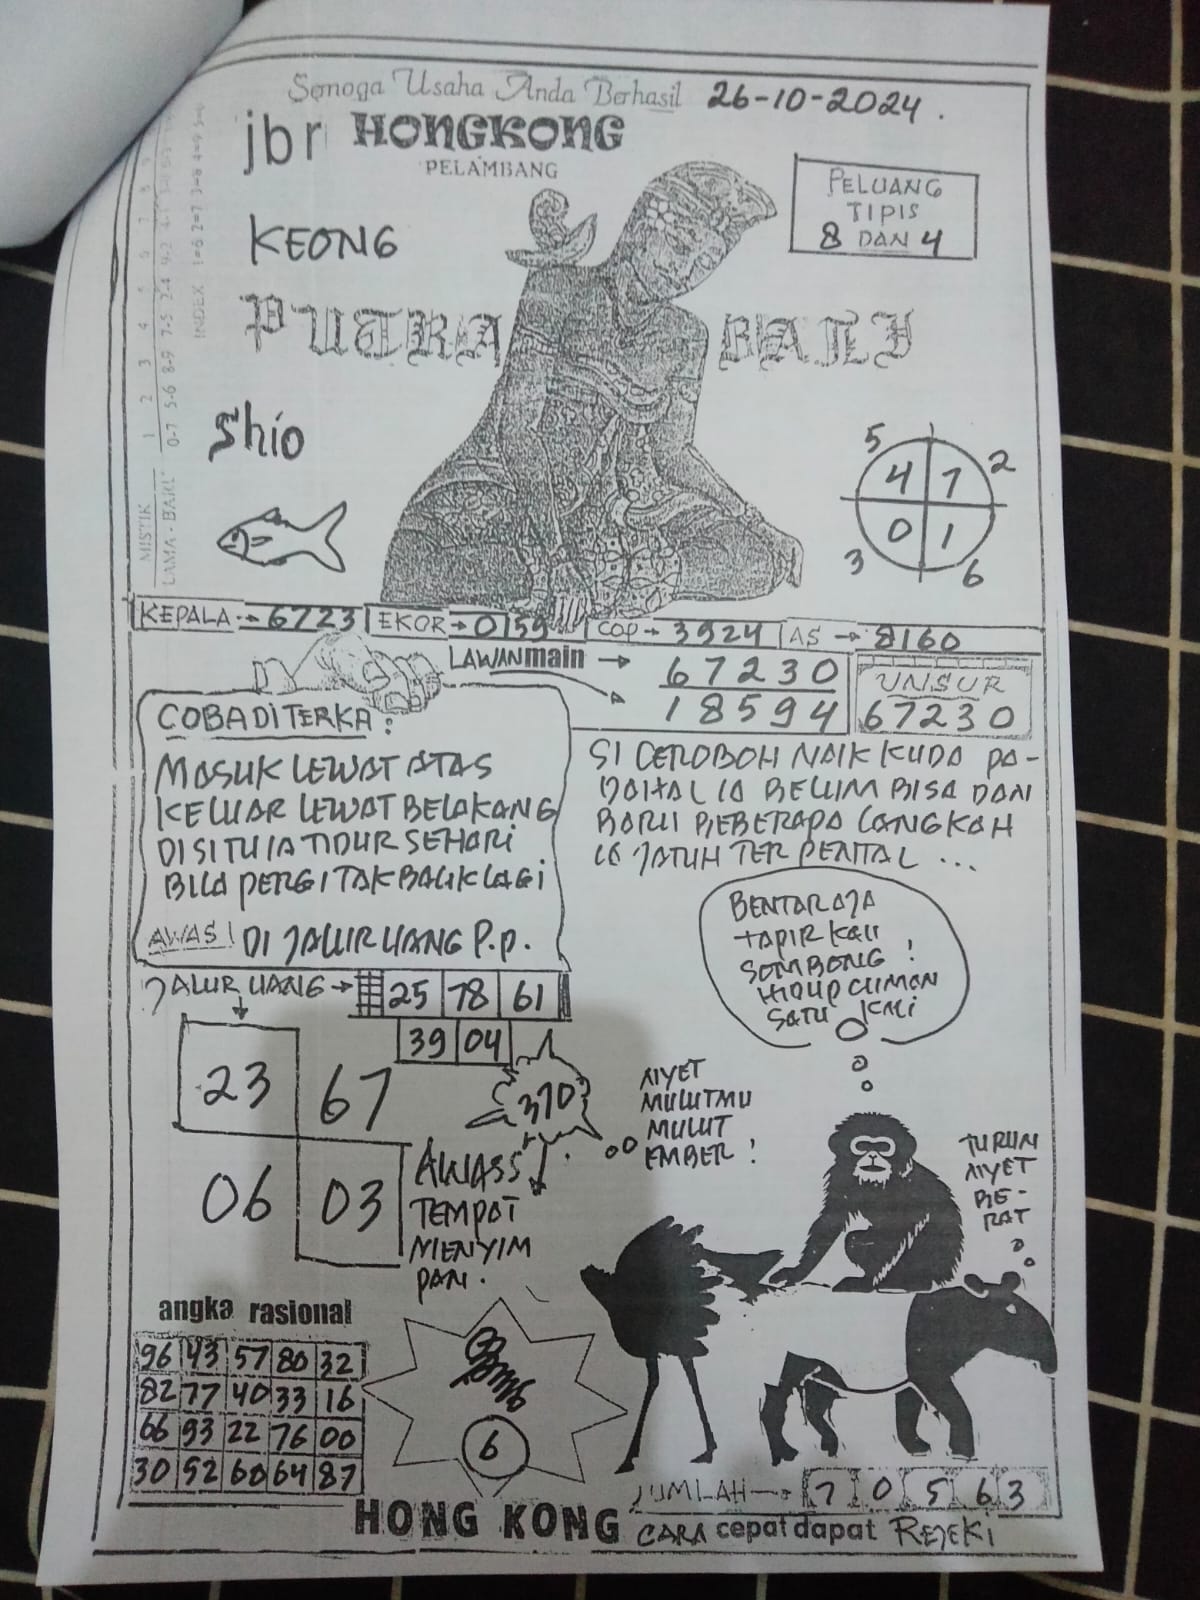 Semoga Usaha Anda Berhasil 26-10-2024.
jbr HONGKONG
PELAMBANG
PELUANG
TIPIS
8 DAN 4
KEONG
PUTRA BALI
shio
INDEX 1=6 2=7 3=8 4=9
MISTIK
LAMA - BARU
5 2
4 7
0 1
3 6
KEPALA → 6723 EKOR → 0159 COP → 3924 AS → 8160
LAWAN main → 67230
18594
UNSUR
67230
COBA DITERKA:
MASUK LEWAT ATAS
KELUAR LEWAT BELAKANG
DISITU IA TIDUR SEHARI
BILA PERGI TAK BALIK LAGI
AWAS! DI JALUR UANG P.P.
SI CEROBOH NAIK KUDA PA-
DAHAL IA BELUM BISA DAN
BARU BEBERAPA LANGKAH
IA JATUH TERPENTAL ...
BENTAR AJA
TAPIR KAU
SOMBONG!
HIDUP CUMAN
SATU KALI
JALUR UANG → 25 78 61
39 04
23 67
06 03
370
AWASS
TEMPAT
MENYIM
PAN.
NYET
MULUTMU
MULUT
EMBER!
TURUN
NYET
BE-
RAT
angka rasional
96 43 57 80 32
82 77 40 33 16
66 93 22 76 00
30 52 60 64 87
6
JUMLAH → 7 0 5 6 3
HONG KONG CARA cepat dapat REJEKI